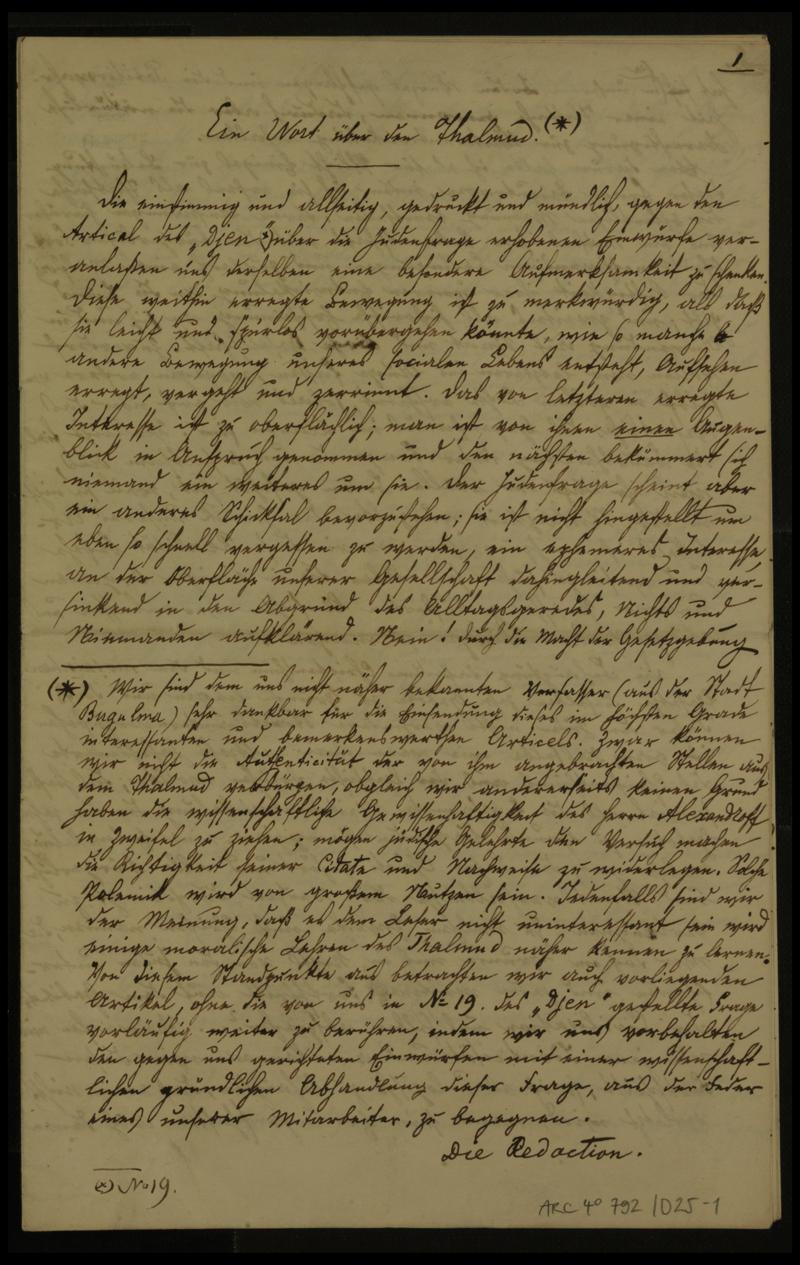 1
Ein Wort über den Thalmud. (*)
Die einstimmig und allseitig, gedruckt und mündlich, gegen den
Artical des „Djen“ *) über die Judenfrage erhobenen Einwürfe ver-
anlaßen uns derselben eine besondere Aufmerksamkeit zu schenken.
Diese weithin erregte Bewegung ist zu merkwürdig, als daß
sie leicht und spurlos vorübergehen könnte, wie so manche
andere Bewegung unseres socialen Lebens entsteht, Aufsehen
erregt, vergeht und zerrinnt. Das von letzteren erregte
Interesse ist zu oberflächlich; man ist von ihnen einen Augen-
blick in Anspruch genommen und den nächsten bekümmert sich
niemand ein weiteres um sie. Der Judenfrage scheint aber
ein anderes Schicksal bevorzustehen; sie ist nicht hingestellt um
eben so schnell vergessen zu werden, ein ephemeres Interesse,
an der Oberfläche unserer Gesellschaft dahingleitend und ver-
sinkend in den Abgrund des Alltagsgeredes, Nichts und
Niemanden aufklärend. Nein! durch die Macht der Gesetzgebung
(*) Wir sind dem uns nicht näher bekannten Verfasser (aus der Stadt
Bugulma) sehr dankbar für die Einsendung dieses im höchsten Grade
interessanten und bemerkenswerthen Articels. Zwar können
wir nicht die Authenticität der von ihm angebrachten Stellen aus
dem Thalmud verbürgen, obgleich wir andererseits keinen Grund
haben die wissenschaftliche Gewissenhaftigkeit des Herrn Alexandroff
in Zweifel zu ziehen; mögen jüdische Gelehrte den Versuch machen
die Richtigkeit seiner Citate und Nachweise zu widerlegen. Solche
Polemik wird von großem Nutzen sein. Jedenfalls sind wir
der Meinung, daß es dem Leser nicht uninteressant sein wird
einige moralische Lehren des Thalmud näher kennen zu lernen.
Von diesem Standpunkte aus betrachten wir auch vorliegenden
Artikel, ohne die von uns in No 19. des „Djen“ gestellte Frage
vorläufig weiter zu berühren, indem wir uns vorbehalten
den gegen uns gerichteten Einwürfen mit einer wissenschaft-
lichen gründlichen Abhandlung dieser Frage, aus der Feder
eines unserer Mitarbeiter, zu begegnen.
Die Redaction.
*) No 19.
ARC 4o 792 / D25-1